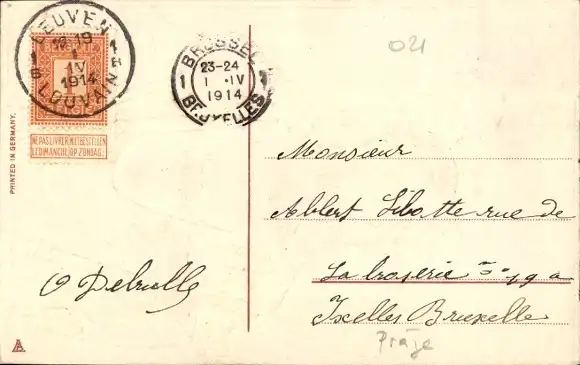 LEUVEN
18-19
1 1
IV
1914
8 B
LOUVAIN
BELGIQUE
1
NE PAS LIVRER NIET BESTELLEN
LE DIMANCHE OP ZONDAG.
BRUSSEL
23-24
1 IV
1914
BRUXELLES
021
PRINTED IN GERMANY.
Monsieur
Albert Libotte rue de
La brasserie
Ixelles Bruxelle
O Debruelle